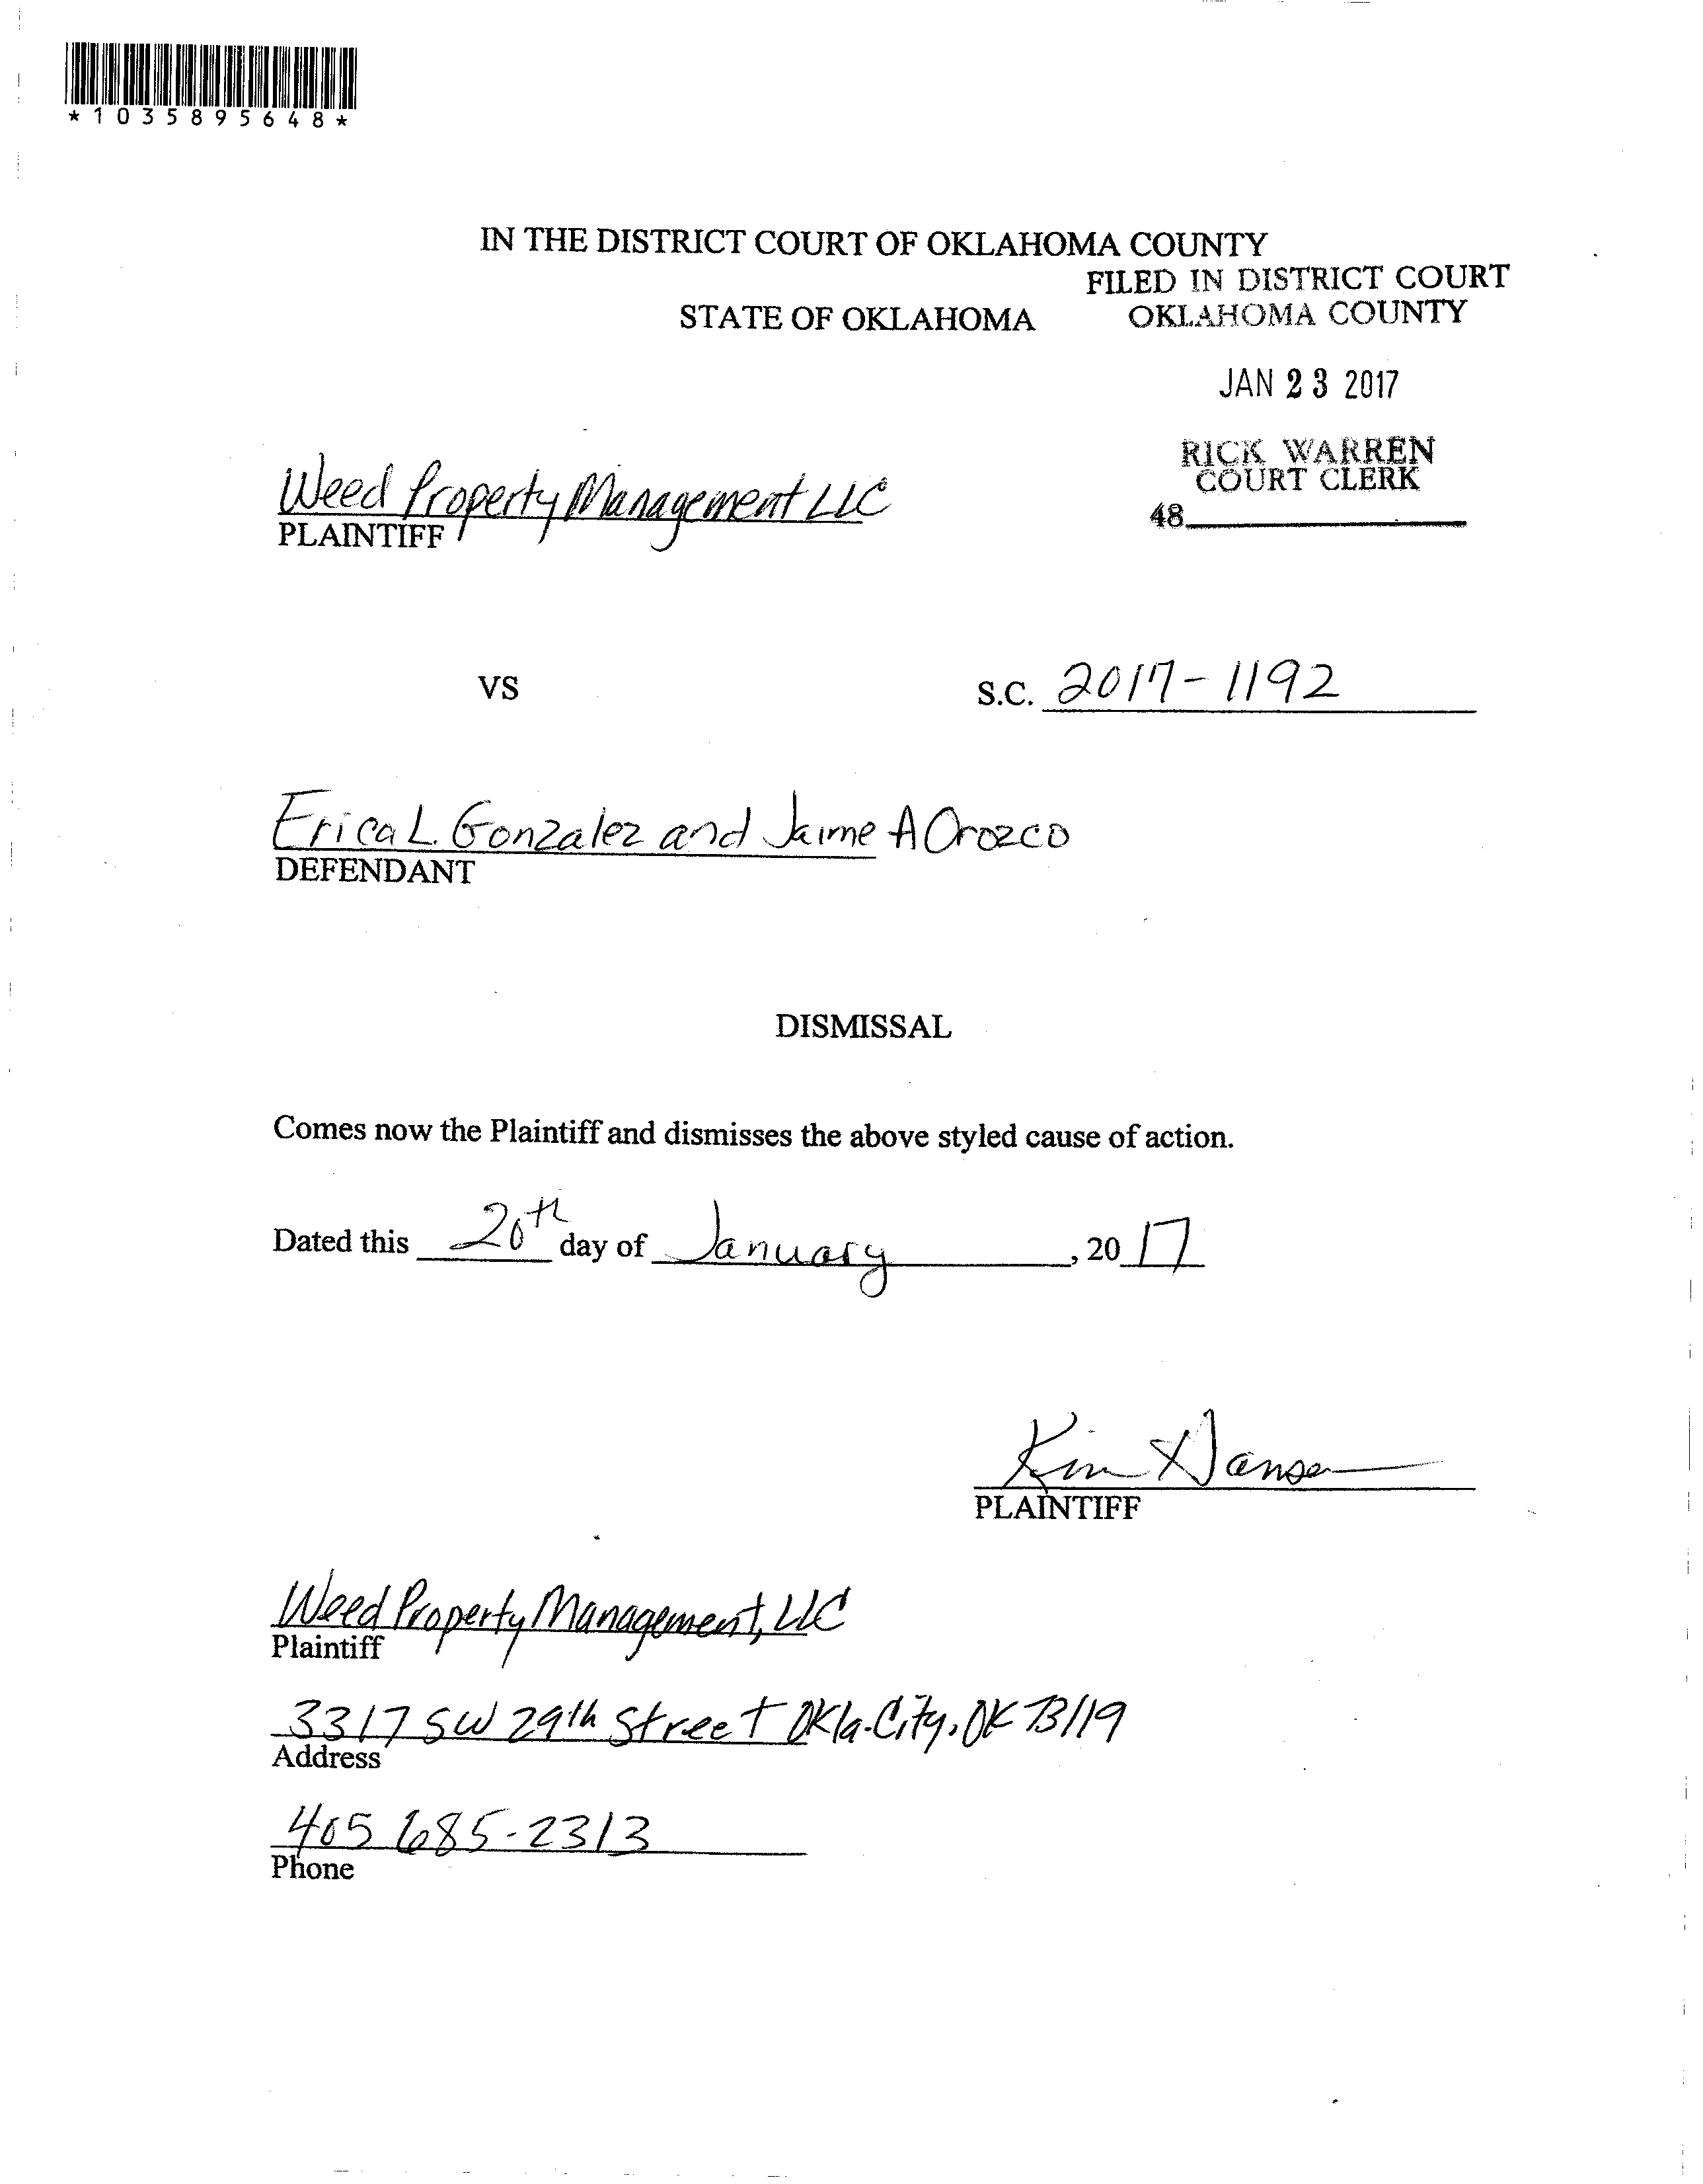 *1035895648*
IN THE DISTRICT COURT OF OKLAHOMA COUNTY
FILED IN DISTRICT COURT
STATE OF OKLAHOMA
OKLAHOMA COUNTY
JAN 23 2017
RICK WARREN
COURT CLERK
48
Weed Property Management LLC
PLAINTIFF
VS
S.C. 2017-1192
Erica L. Gonzalez and Jaime A Orozco
DEFENDANT
DISMISSAL
Comes now the Plaintiff and dismisses the above styled cause of action.
Dated this 20th day of January, 2017
Kim Hansen
PLAINTIFF
Weed Property Management, LLC
Plaintiff
3317 SW 29th Street Okla. City, OK 73119
Address
405 685-2313
Phone